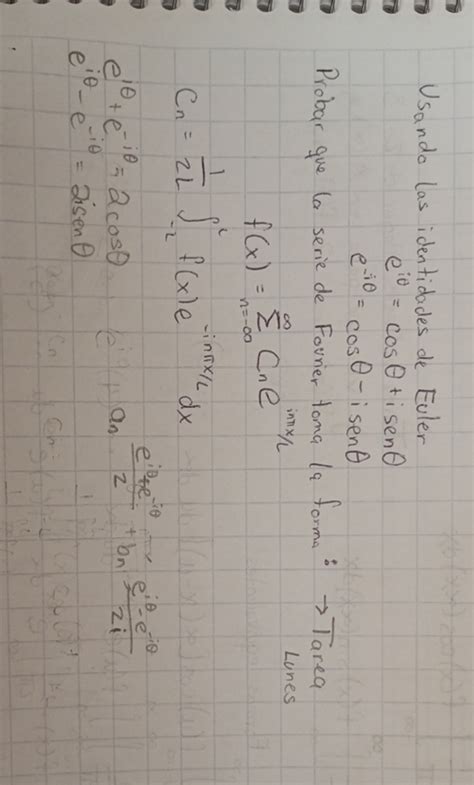 Usando las identidades de Euler
e^{iθ} = cosθ + i senθ
e^{-iθ} = cosθ - i senθ
Probar que la serie de Fourier toma la forma: → Tarea
Lunes
f(x) = Σ_{n=-∞}^{∞} Cn e^{inπx/L}
Cn = 1/2L ∫_{-L}^{L} f(x) e^{-inπx/L} dx
e^{iθ} + e^{-iθ} = 2cosθ
e^{iθ} - e^{-iθ} = 2isenθ
an (e^{iθ} + e^{-iθ})/2 + bn (e^{iθ} - e^{-iθ})/2i